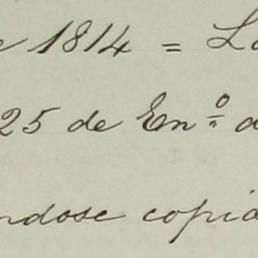 e 1814 = La
25 de En.º d
ndose copia